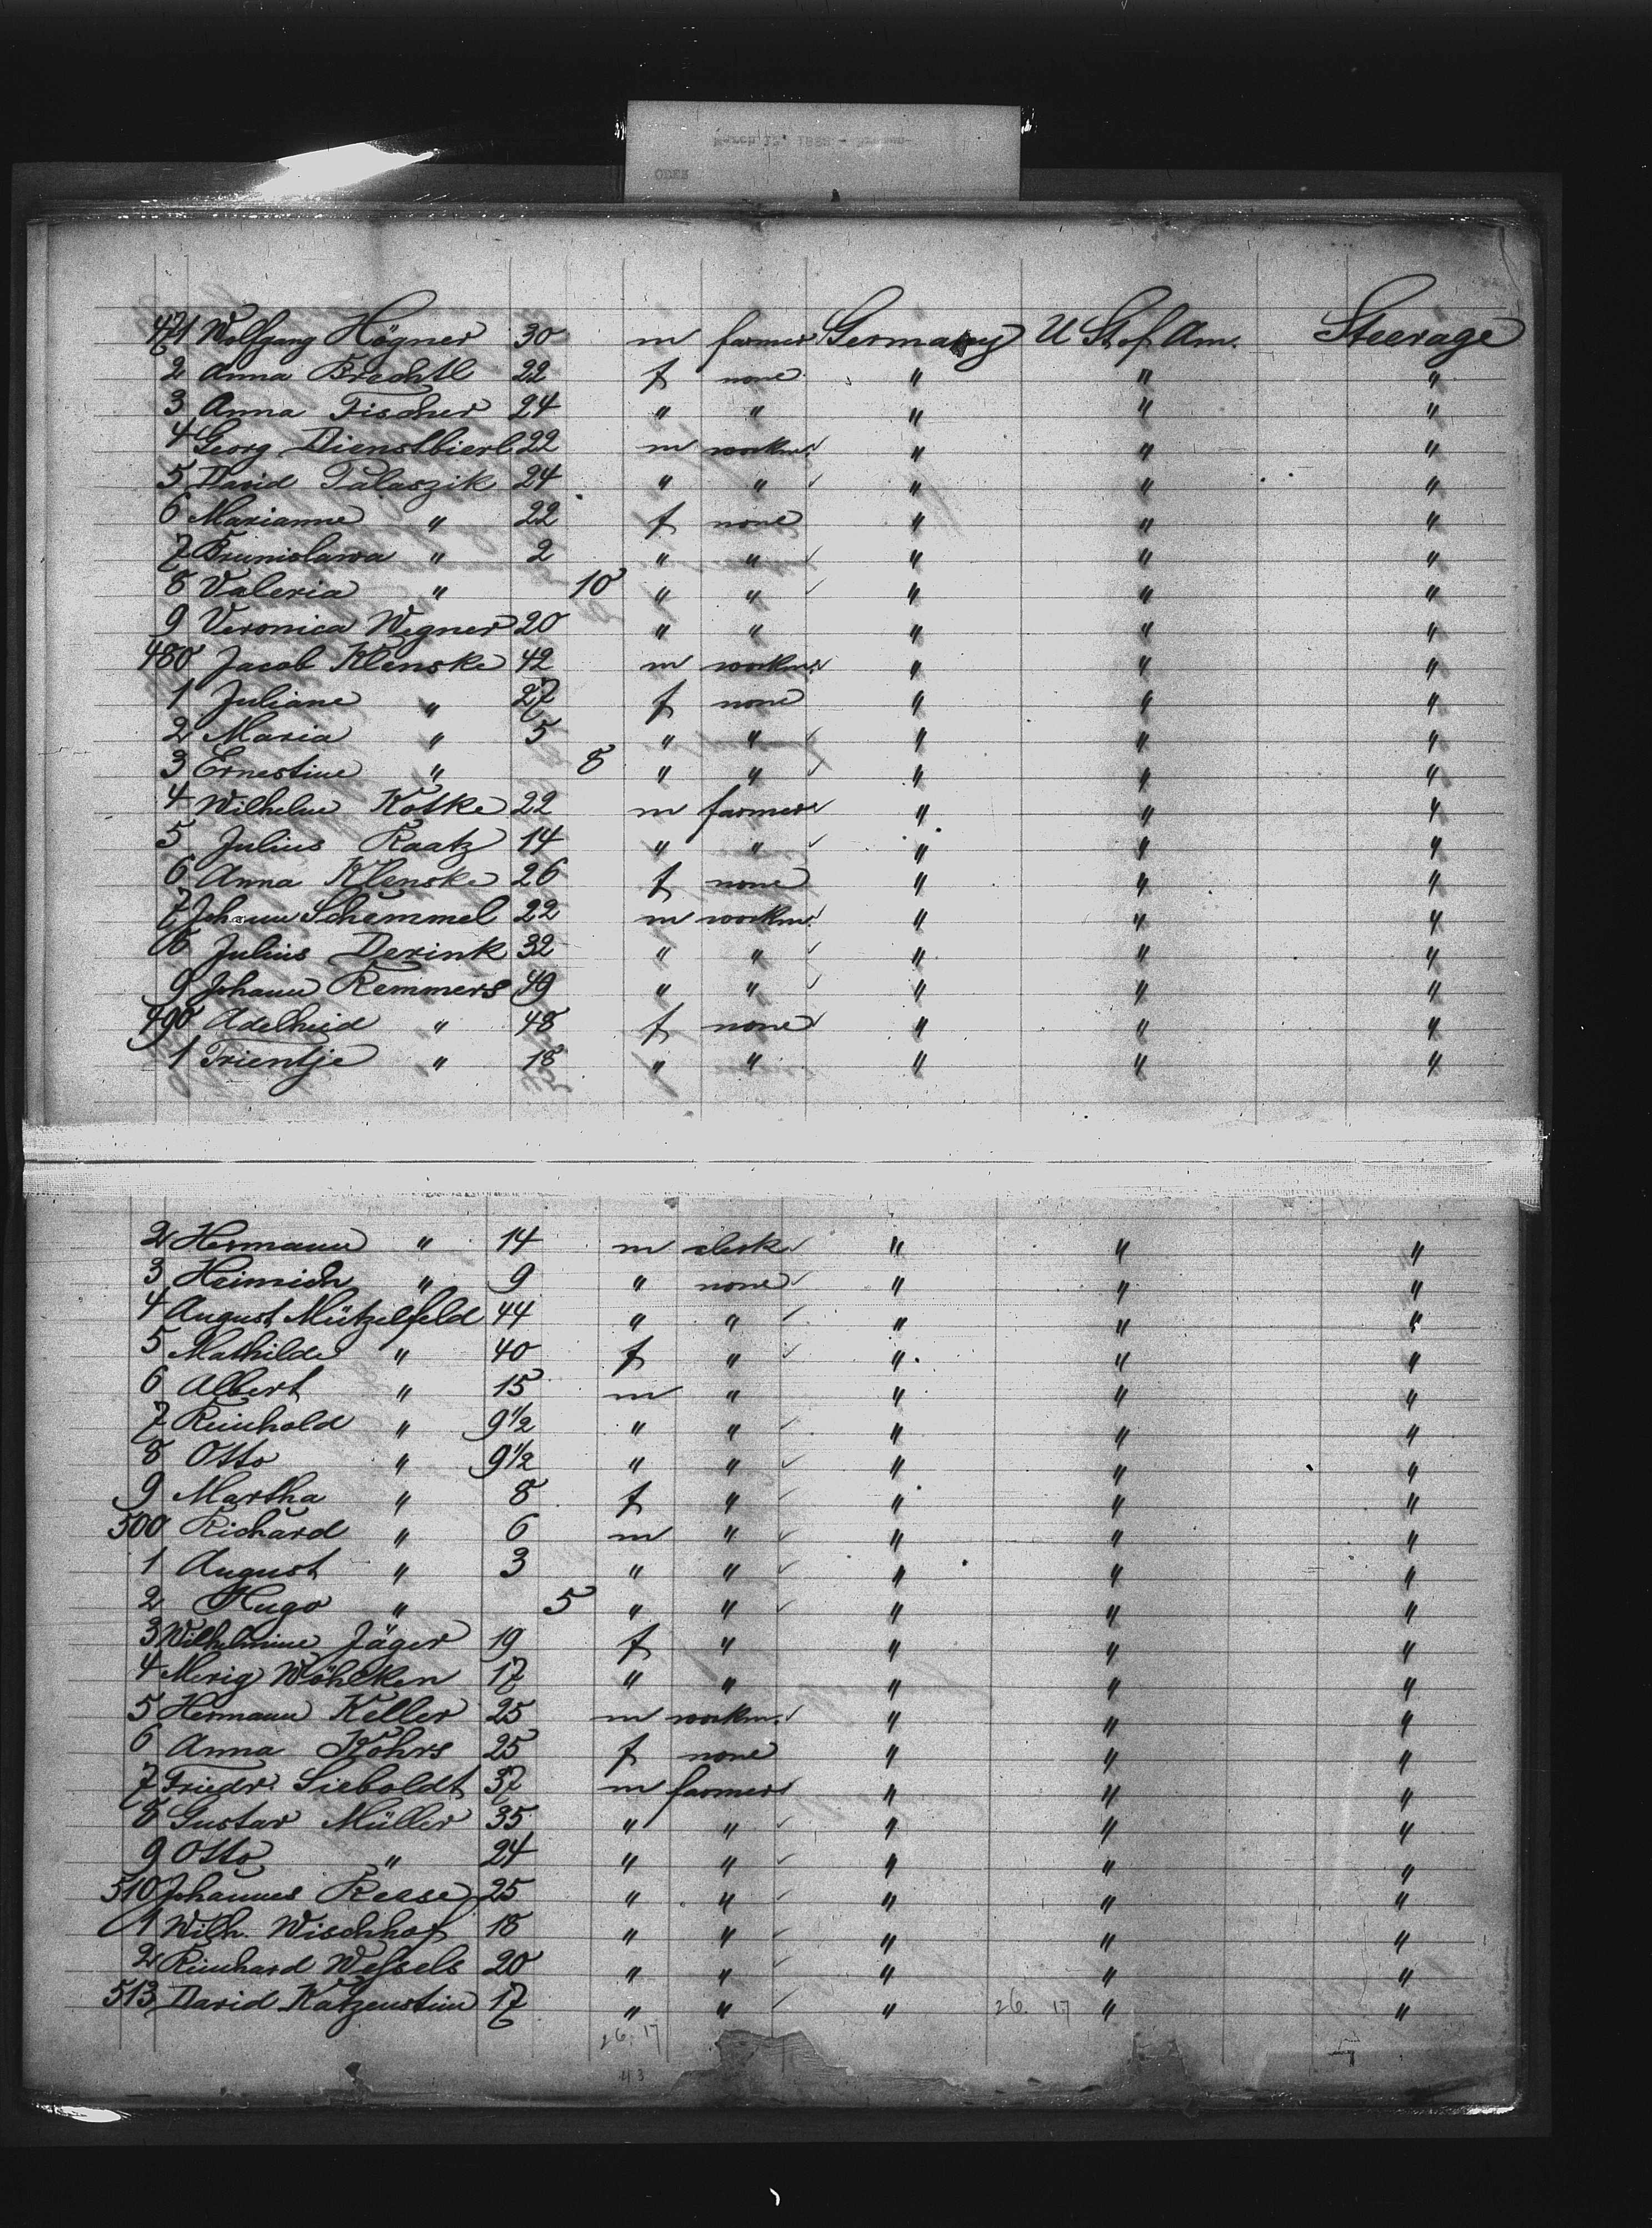 471 Wolfgang Högner 30 m farmer Germany U St of Am. Steerage
2 Anna Brechtl 22 f none " " "
3 Anna Fischer 24 " " " " "
4 Georg Dienstbierl 22 m workm. " " "
5 David Palaszik 24 " " " " "
6 Marianne " 22 f none " " "
7 Brunislawa " 2 " " " " "
8 Valeria " 10 " " " " "
9 Veronica Wegner 20 " " " " "
480 Jacob Klenske 42 m workm. " " "
1 Juliane " 27 f none " " "
2 Maria " 5 " " " " "
3 Ernestine " 8 " " " " "
4 Wilhelm Kotke 22 m farmer " " "
5 Julius Raatz 14 " " " " "
6 Anna Klenske 26 f none " " "
7 Johann Schemmel 22 m workm. " " "
8 Julius Derink 32 " " " " "
9 Johann Remmers 49 " " " " "
490 Adelheid " 48 f none " " "
1 Trientje " 18 " " " " "
2 Hermann " 14 m clerk " " "
3 Heinrich " 9 " none " " "
4 August Mützelfeld 44 " " " " "
5 Mathilde " 40 f " " " "
6 Albert " 15 m " " " "
7 Reinhold " 9 1/2 " " " " "
8 Otto " 9 1/2 " " " " "
9 Martha " 8 f " " " "
500 Richard " 6 m " " " "
1 August " 3 " " " " "
2 Hugo " 5 " " " " "
3 Wilhelmine Jäger 19 f " " " "
4 Merig Wöhlken 17 " " " " "
5 Hermann Keller 25 m workm. " " "
6 Anna Köhrs 25 f none " " "
7 Friedr. Sieboldt 37 m farmer " " "
8 Gustav Müller 35 " " " " "
9 Otto " 24 " " " " "
510 Johannes Reese 25 " " " " "
1 Wilh. Wischhof 18 " " " " "
2 Reinhard Wessels 20 " " " " "
513 David Katzenstein 17 " " " 26. 17 " "
26. 17
43